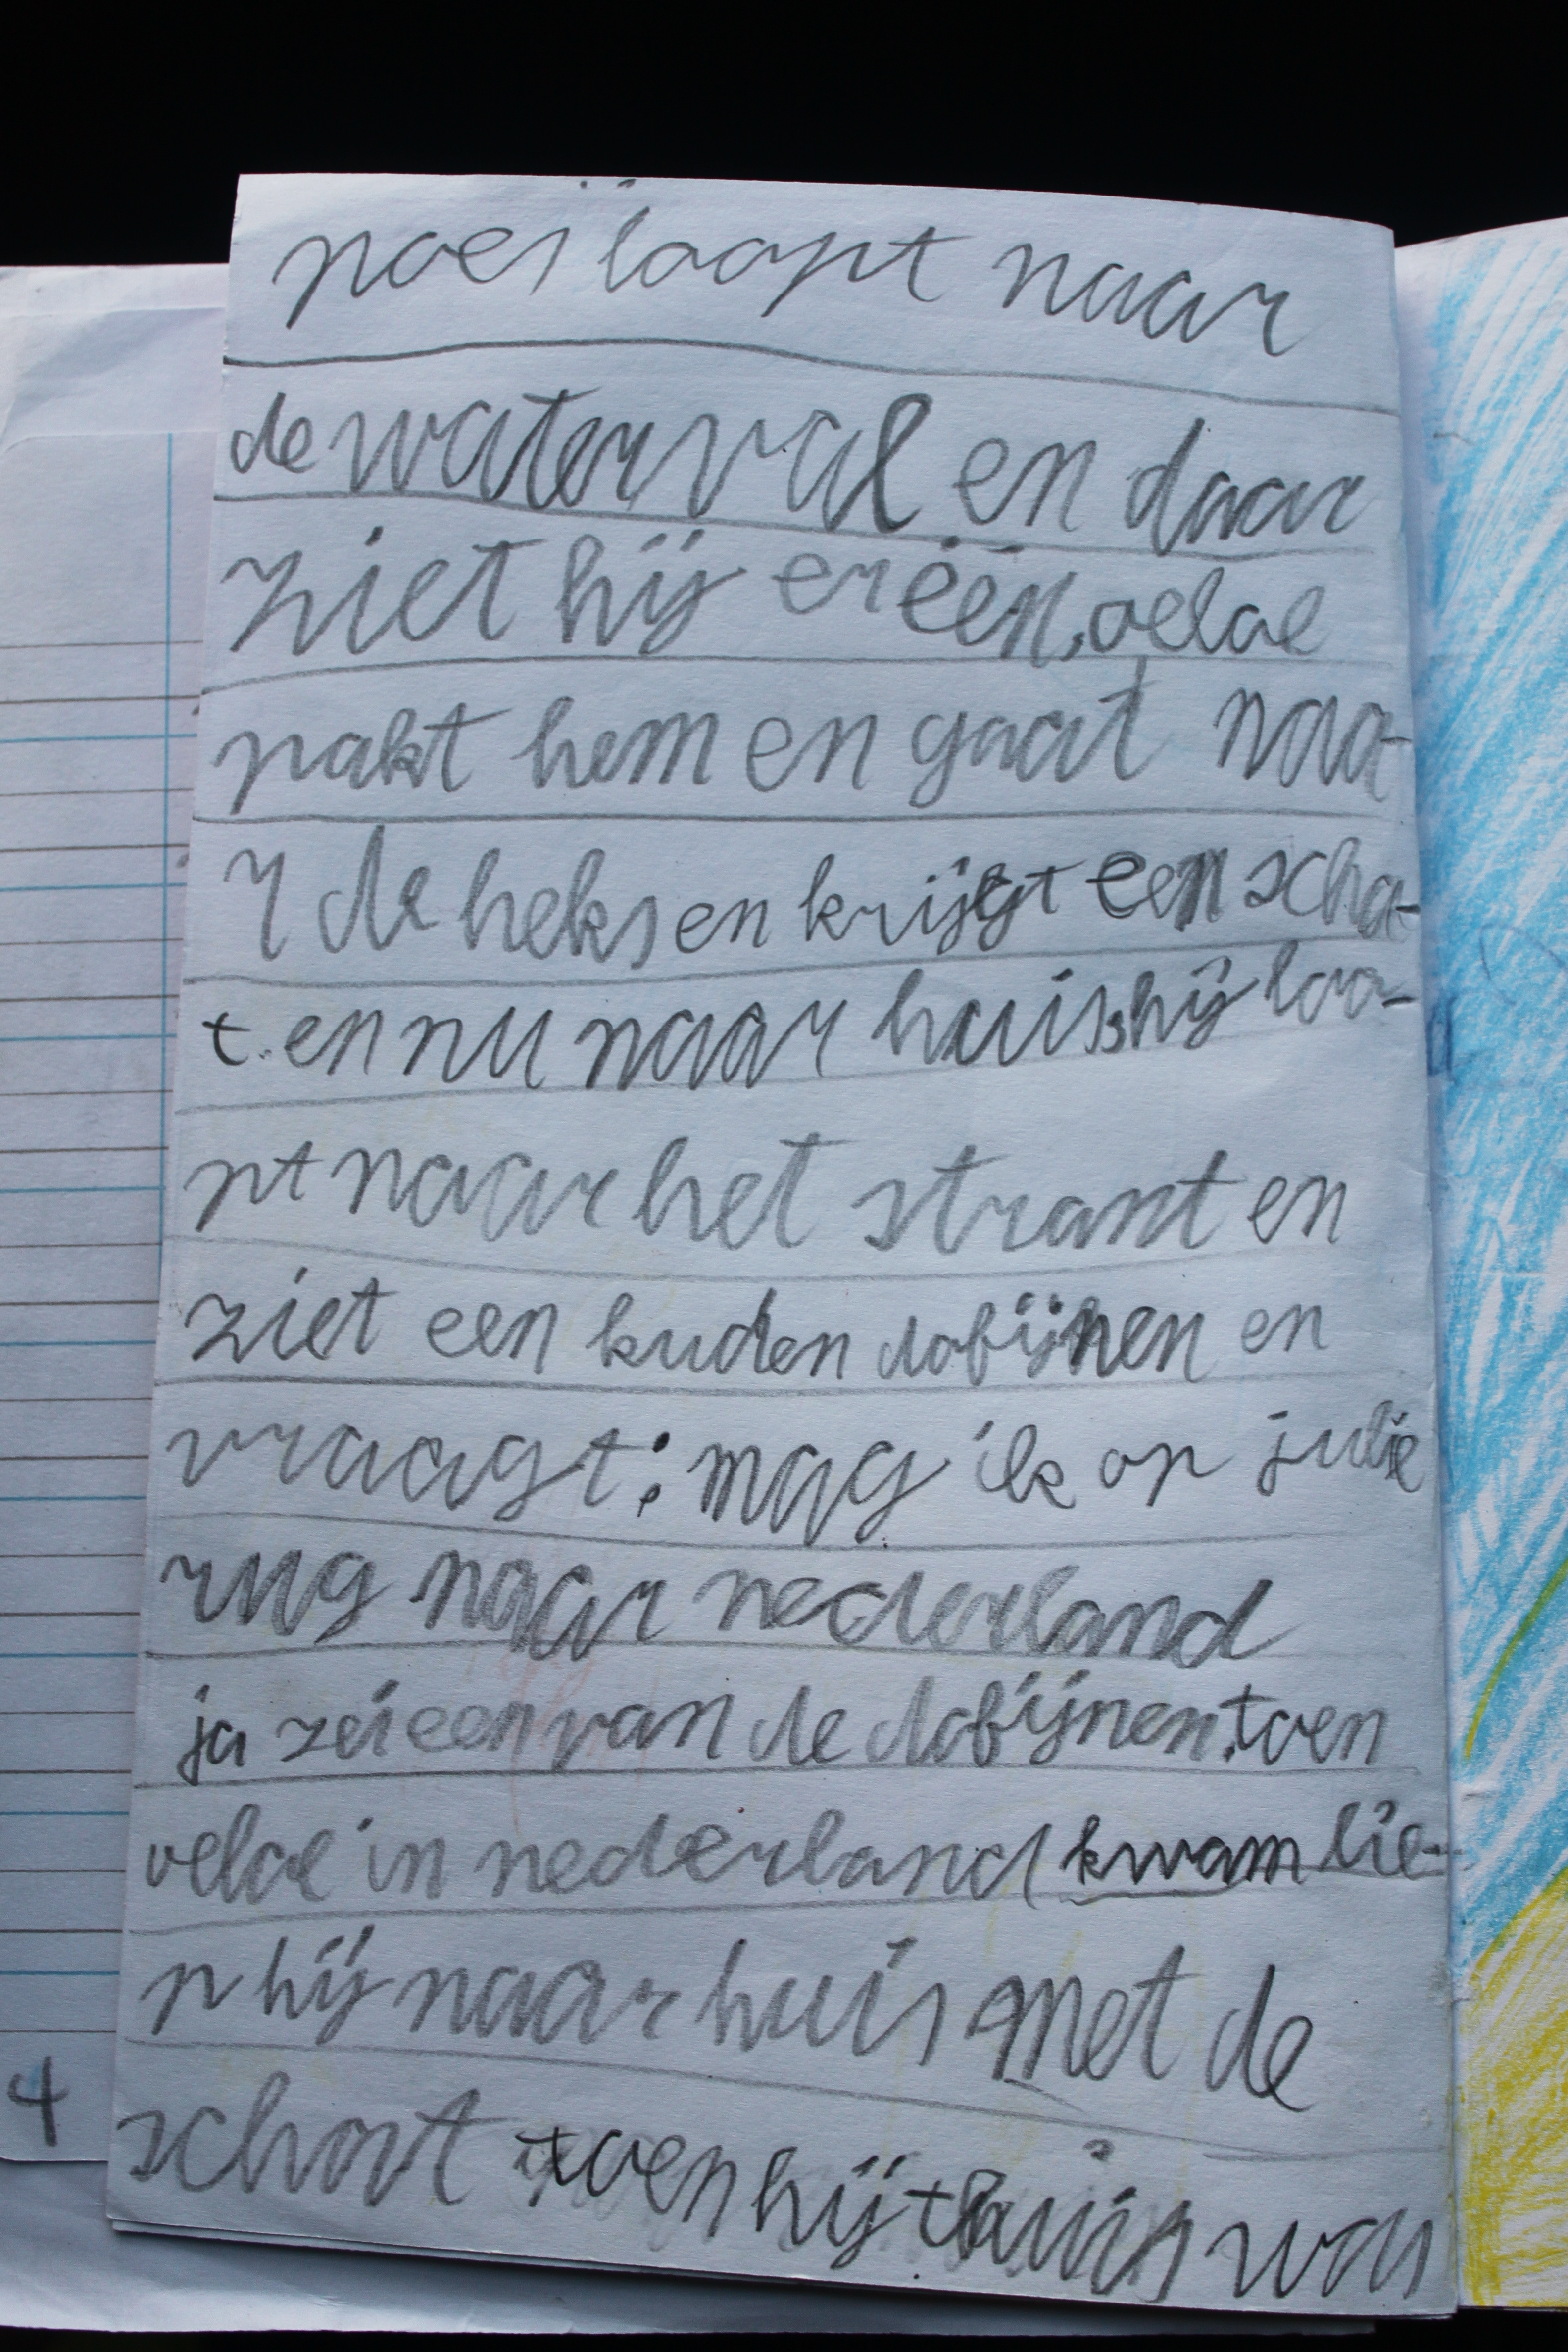 poes loopt naar
de waterval en daar
ziet hij er één, oeloe
pakt hem en gaat naa-
r de heks en krijgt een scha-
t. en nu naar huis, hij loo-
pt naar het strant en
ziet een kudden dofijnen en
vraagt: mag ik op julie
rug naar nederland
ja zei een van de dofijnen. toen
oeloe in nederland kwam lie-
p hij naar huis met de
schat toen hij thuis was
4